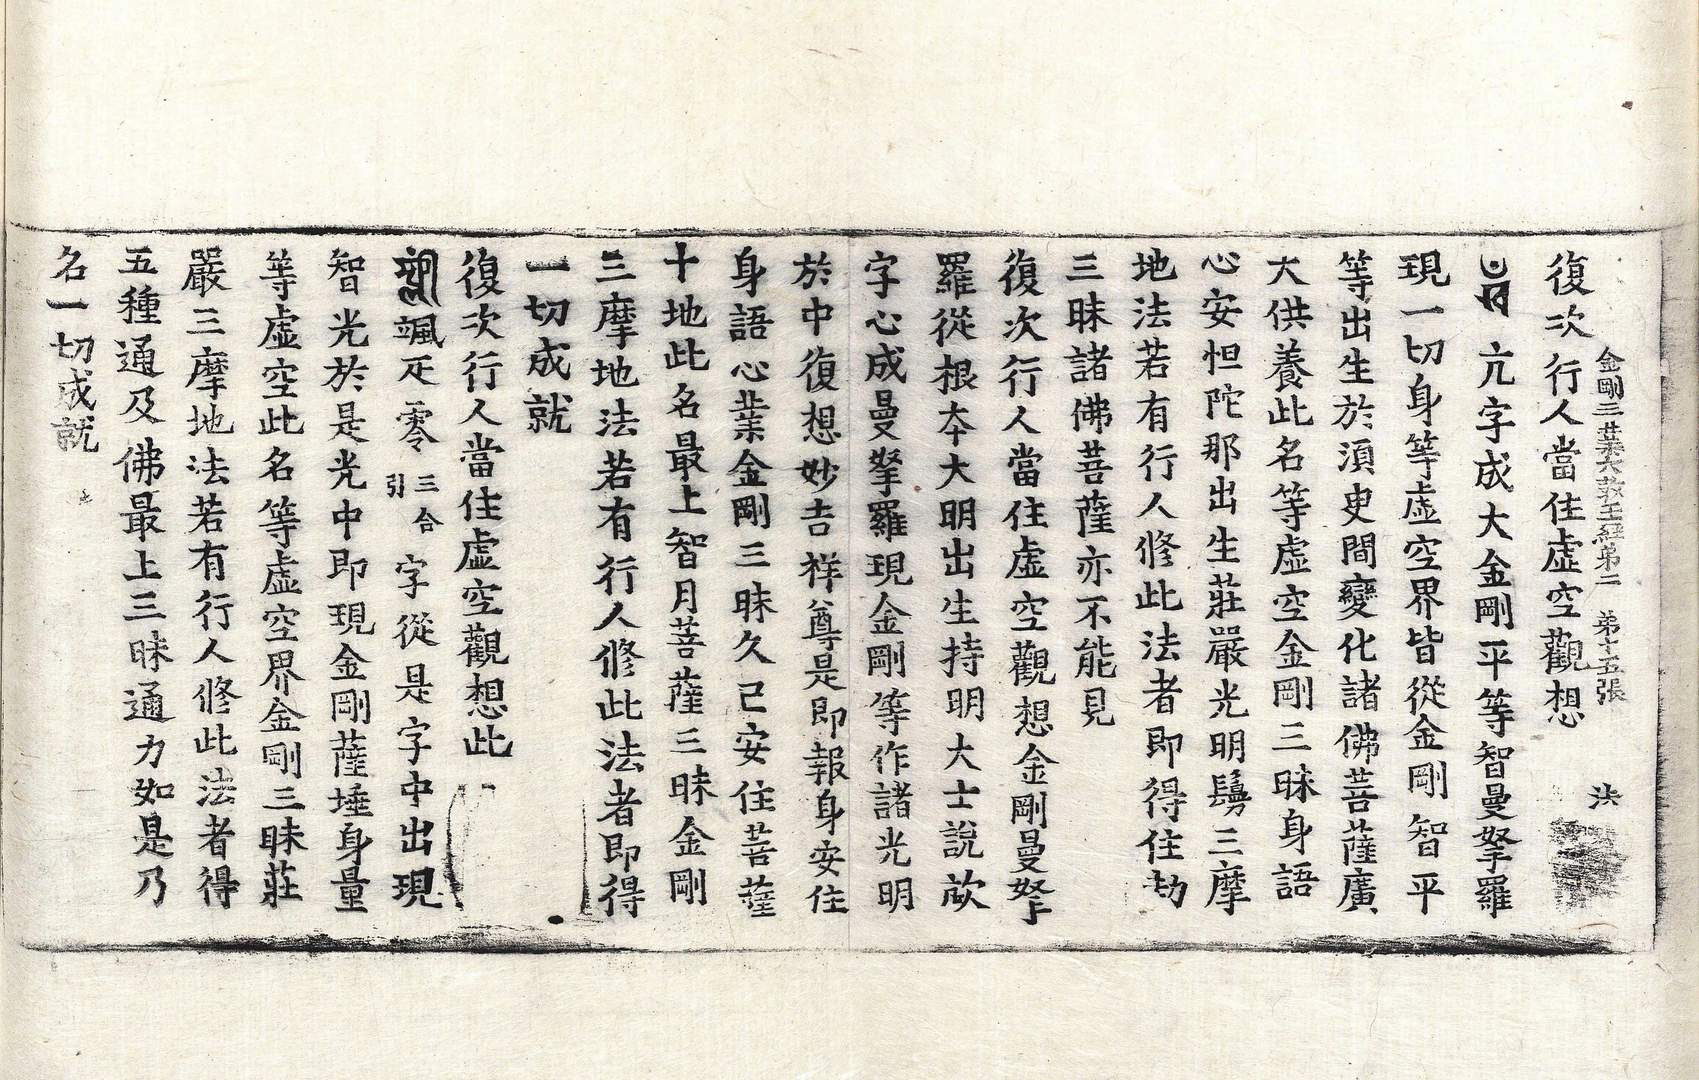 金剛三業大教王經第二 第十五張 法
復次行人當住虛空觀想
亢字成大金剛平等智曼拏羅
現一切身等虛空界皆從金剛智平
等出生於須臾間變化諸佛菩薩廣
大供養此名等虛空金剛三昧身語
心安怛陀那出生莊嚴光明鬘三摩
地法若有行人修此法者即得住劫
三昧諸佛菩薩亦不能見
復次行人當住虛空觀想金剛曼拏
羅從根本大明出生持明大士說㰠
字心成曼拏羅現金剛等作諸光明
於中復想妙吉祥尊是即報身安住
身語心業金剛三昧久已安住菩薩
十地此名最上智月菩薩三昧金剛
三摩地法若有行人修此法者即得
一切成就
復次行人當住虛空觀想此
颯疋零三合引字從是字中出現
智光於是光中即現金剛薩埵身量
等虛空此名等虛空界金剛三昧莊
嚴三摩地法若有行人修此法者得
五種通及佛最上三昧通力如是乃
名一切成就